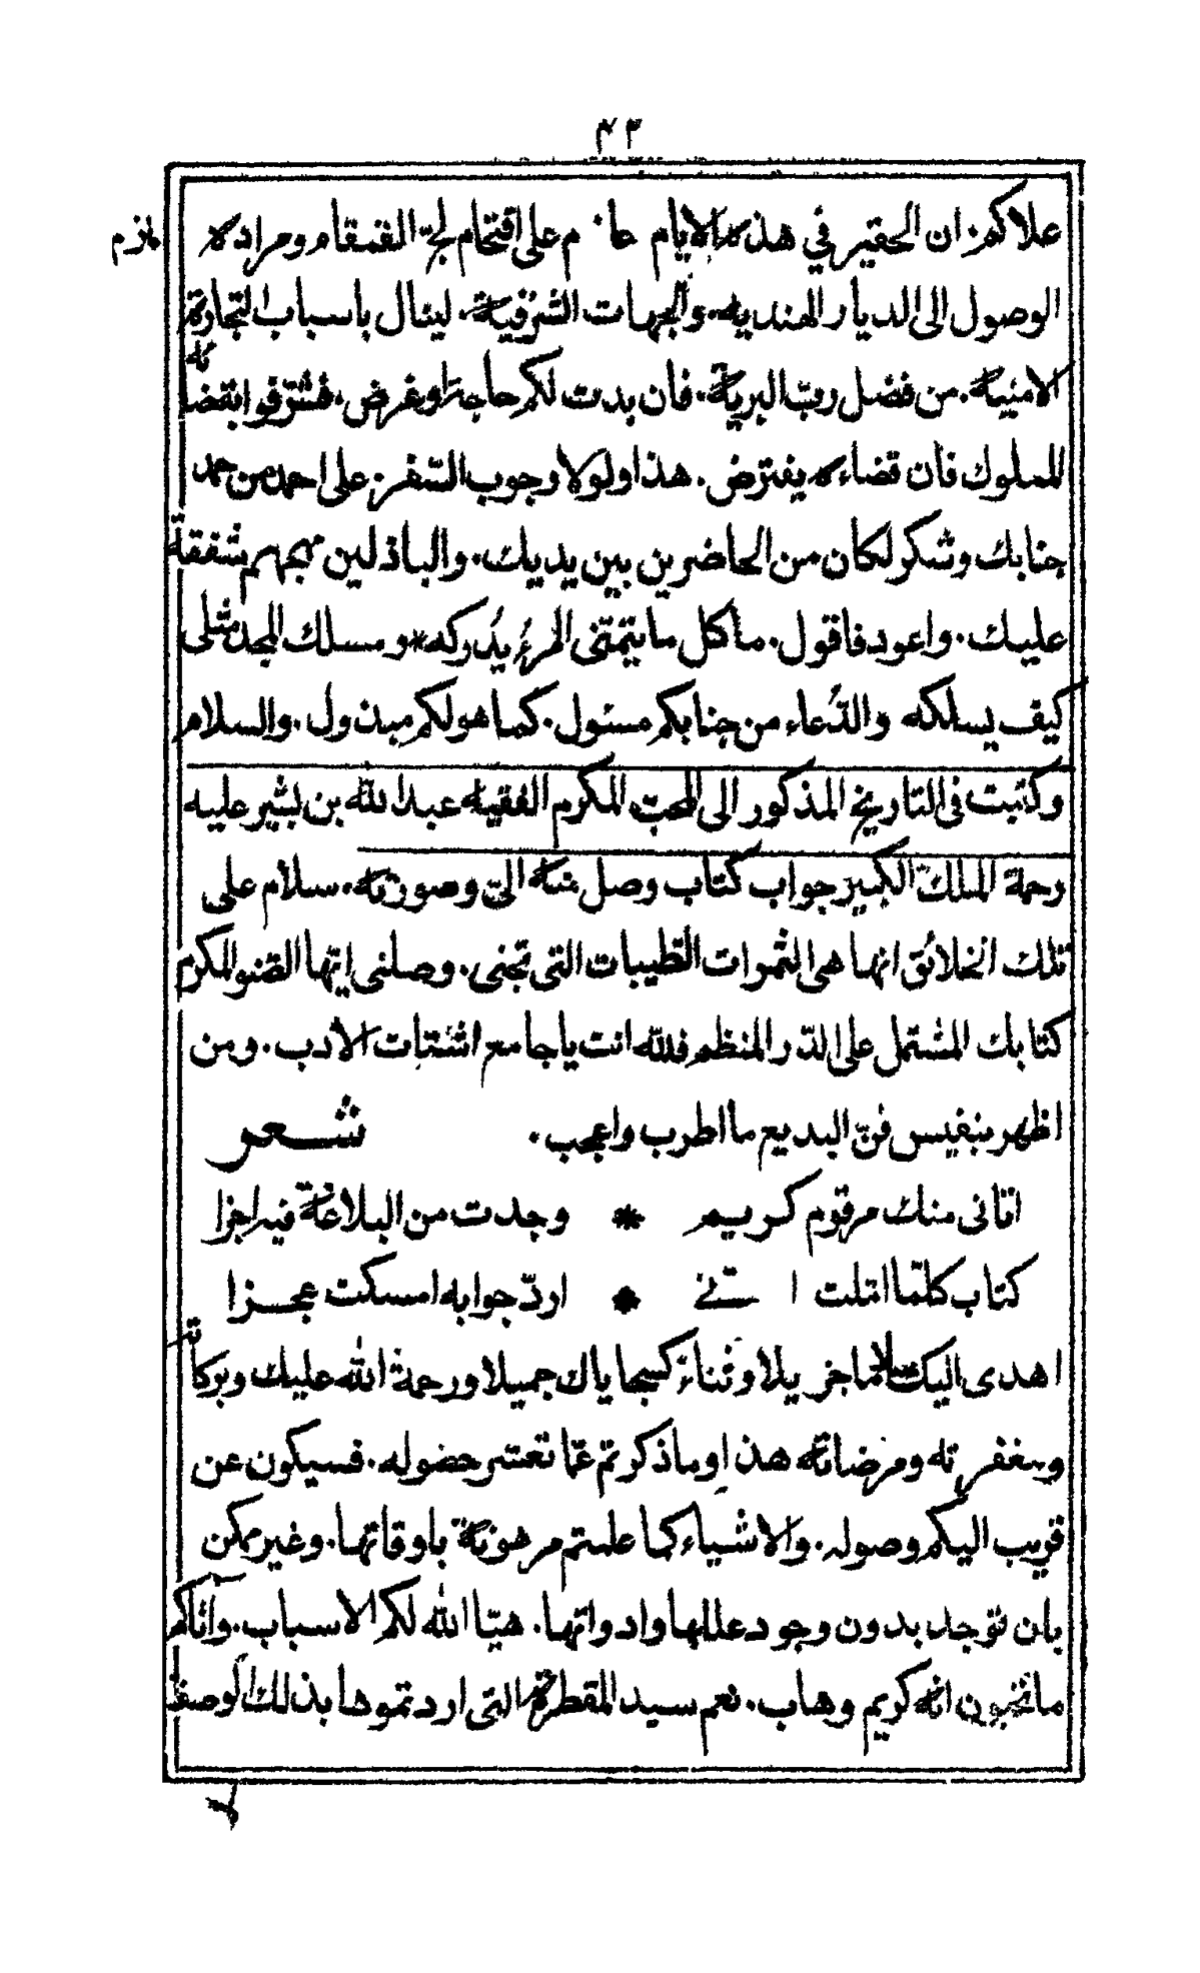 ٤٢
علاكم. ان الحقير في هذه الايام عازم على اقتحام لجة القمقام ومراده
الوصول الى الديار الهندية. والجهات الشرفية. لينال باسباب التجارة
الامنية. من فضل ربّ البرية. فان بدت لكم حاجة او غرض. فشرّفوا بقضائه
المملوك فان قضاءه يفترض. هذا ولولا وجوب السّفر على احمد من حمد
جنابك وشكر لكان من الحاضرين بين يديك. والباذلين مهجهم شفقة
عليك. واعود فاقول. ما كل ما يتمنّى المرءُ يدركه * ومسلك المجد مثلى
كيف يسلكه والدّعاء من جنابكم مسئول. كما هو لكم مبذول. والسلام
وكتبت فى التاريخ المذكور الى المحبّ المكرم الفقيه عبد الله بن بشير عليه
رحمة الملك الكبير جواب كتاب وصل منه الىّ وصورته. سلام على
تلك الخلائق انها هى الثمرات الطيبات التى تجنى. وصلنى ايّها الصّنو المكرم
كتابك المشتمل على الدّر المنظم فلله انت يا جامع اشتات الادب. ومن
اظهر بنفيس فنّ البديع ما اطرب واعجب.
شعر
اتانى منك مرقوم كريم * وجدت من البلاغة فيه اجزا
كتاب كلّما اتلت * اردّ جوابه امسكت عجزا
اهدى اليك سلاما جزيلا وثناءً كسجاياك جميلا ورحمة الله عليك وبركاته
ومغفرته ومرضاته هذا وما ذكرتم عمّا تعسّر حضوله. فسيكون عن
قريب اليكم وصوله. والاشياء كما علمتم مرهونة باوقاتها. وغير ممكن
بان توجد بدون وجود عللها وادواتها. هيّا الله لكم الاسباب. وآتاكم
ما تحبون انه كريم وهاب. نعم سيد المقطرة التى اردتموها بذلك الوصف